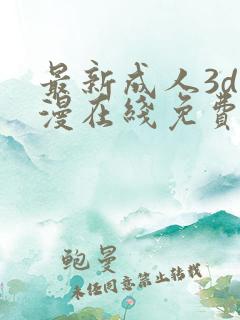 最新成人3d
漫在綫免費
鲍曼
未经同意禁止转载